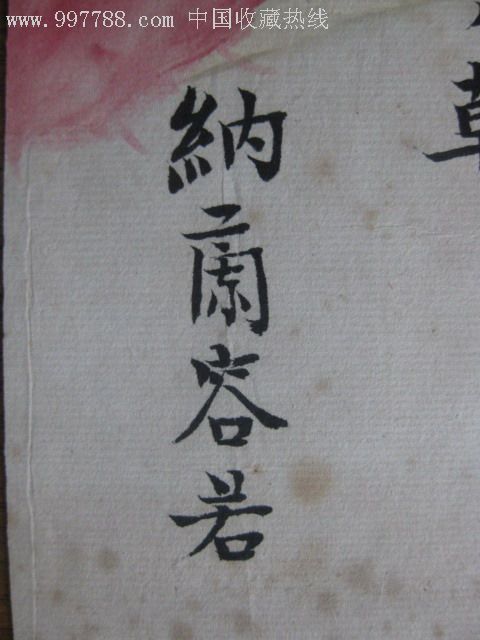 www.997788.com 中国收藏热线
納蘭容若